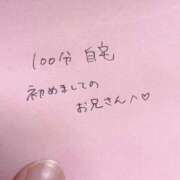 100分 自宅
初めましての
お兄さん♪♡